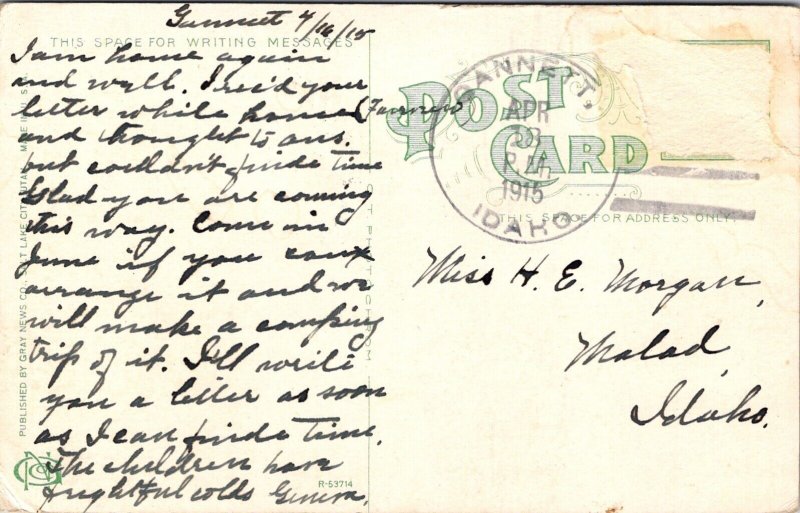 Gannett 4/18/15
THIS SPACE FOR WRITING MESSAGES
I am home again
and well. I rec'd your
letter while home (Fairview)
and thought to ans.
but couldn't finde time
Glad you are coming
this way. Come in
June if you can
arrange it and we
will make a camping
trip of it. I'll write
you a letter as soon
as I can finde time.
The children have
frightful colds Geneva.
PUBLISHED BY GRAY NEWS CO., SALT LAKE CITY, UTAH. MADE IN U. S. A.
R-53714
POST
CARD
GANNETT,
APR
23
P.M.
1915
IDAHO
THIS SPACE FOR ADDRESS ONLY.
Miss H. E. Morgan,
Malad,
Idaho.